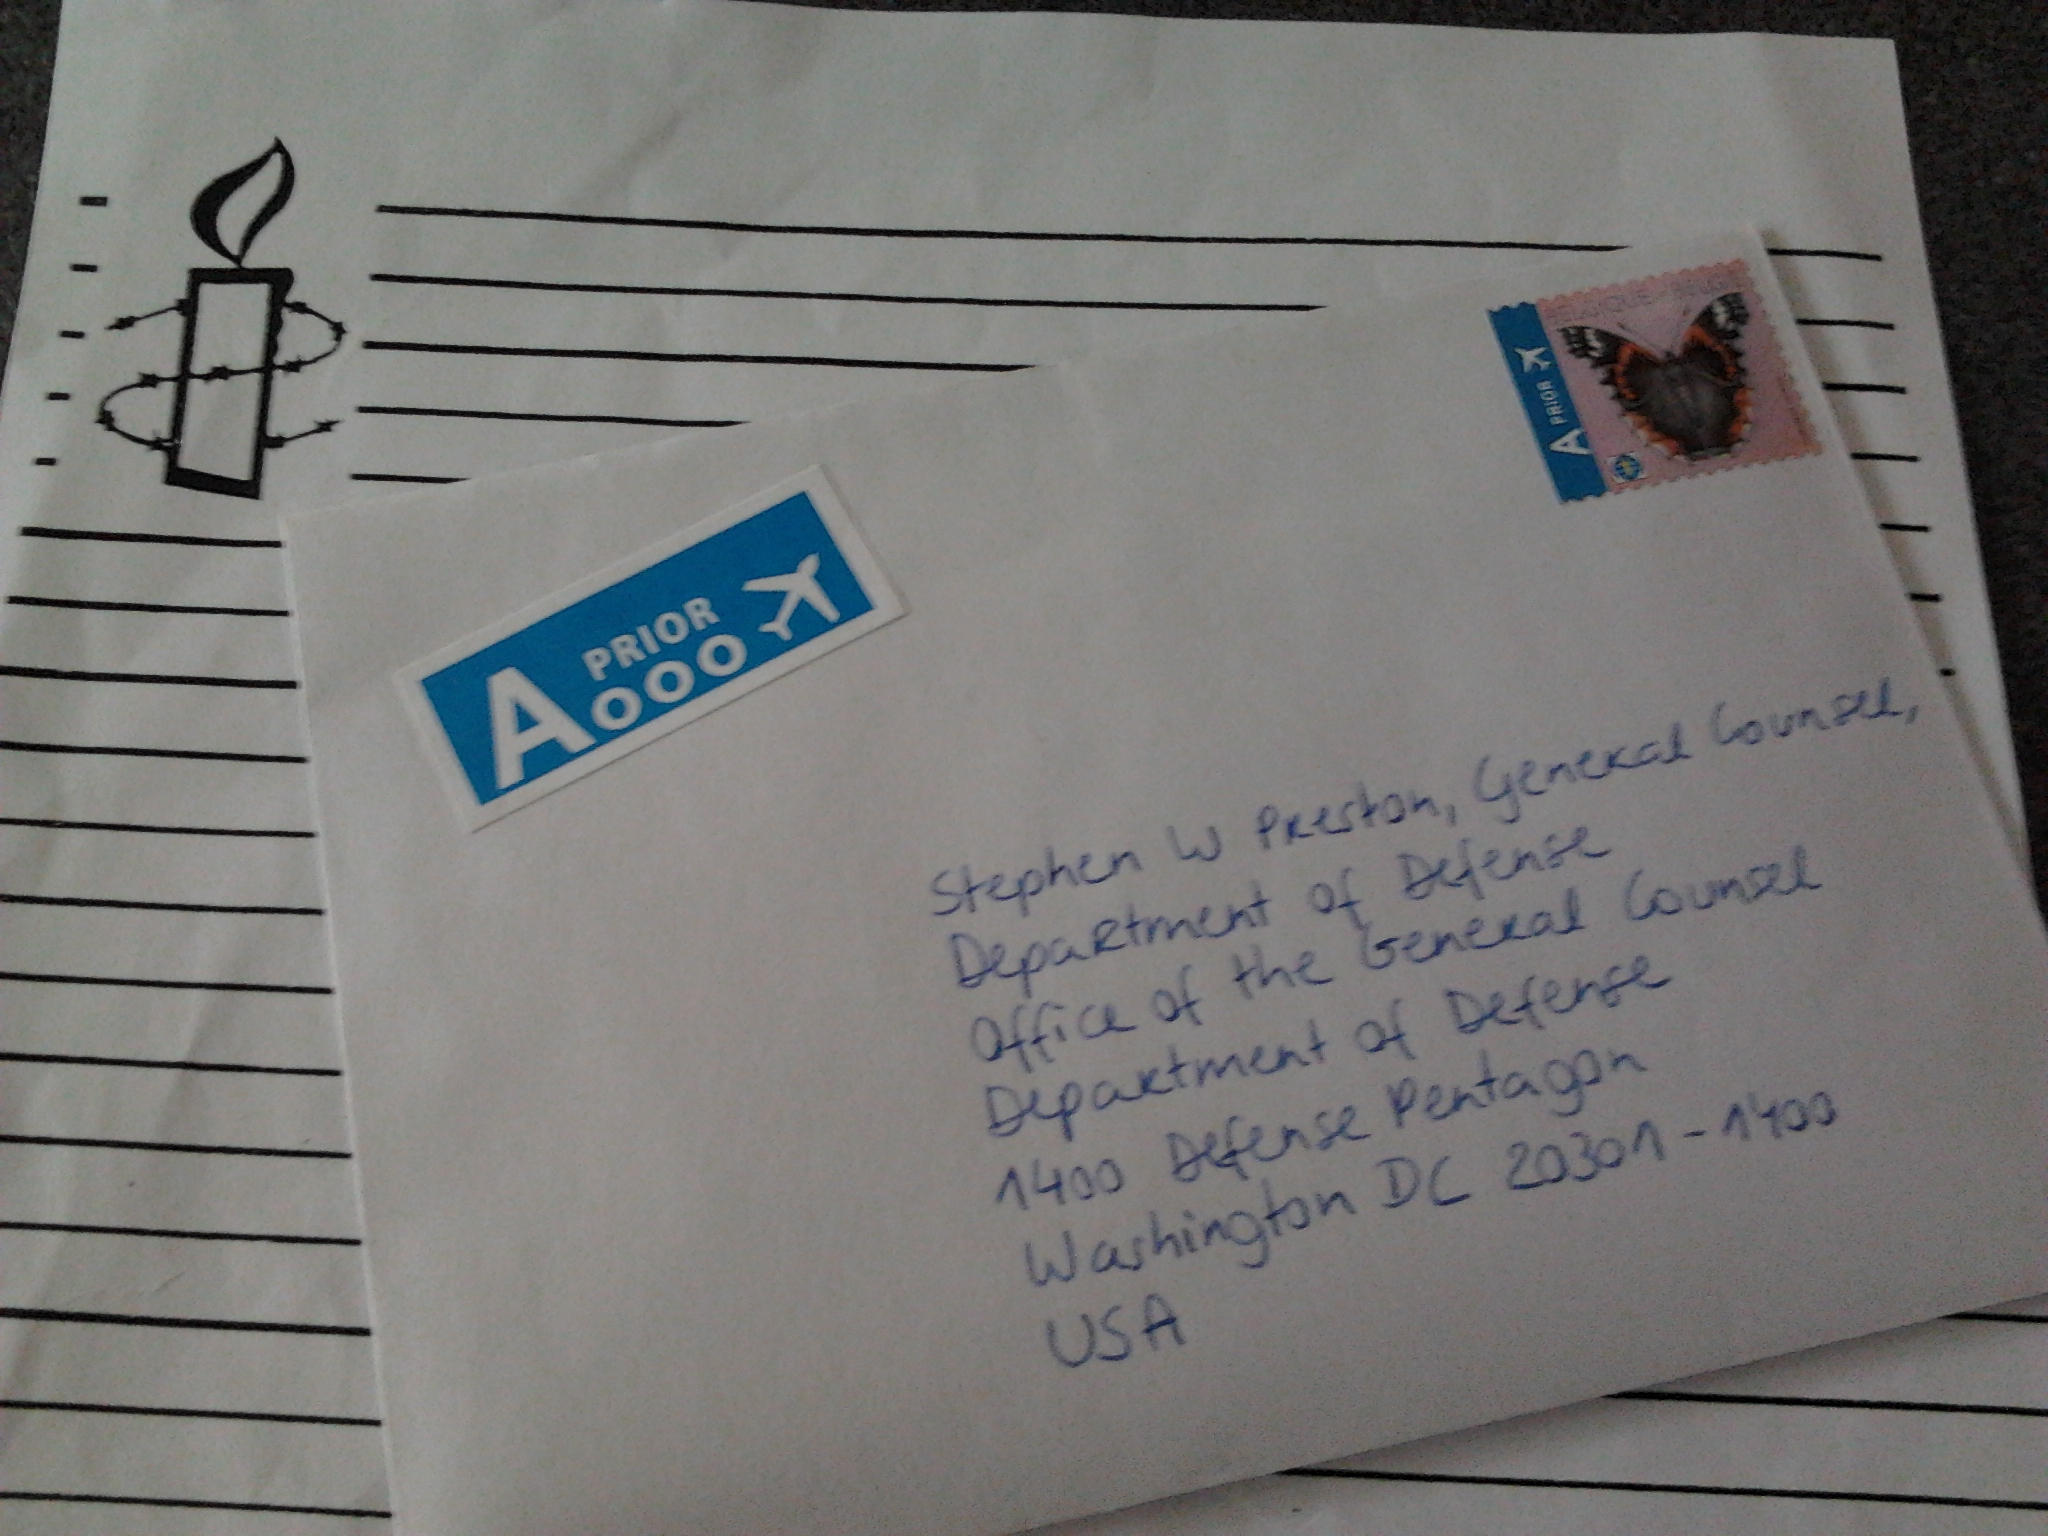 BELGIQUE
A PRIOR
A PRIOR
Stephen W Preston, General Counsel,
Department of Defense
Office of the General Counsel
Department of Defense
1400 Defense Pentagon
Washington DC 20301-1400
USA